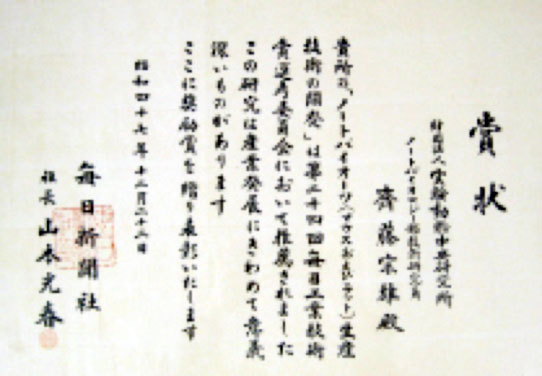 賞状
財団法人実験動物中央研究所
ノートバイオロジー部技術研究員
齊藤宗雄殿
貴所の、ノートバイオーツ(マウスおよびラット)生産
技術の開発」は第二十四回毎日工業技術
賞選考委員会において推薦されました
この研究は産業発展にきわめて意義
深いものがあります
ここに奨励賞を贈り表彰いたします
昭和四十七年十二月二十二日
毎日新聞社
社長 山本光春